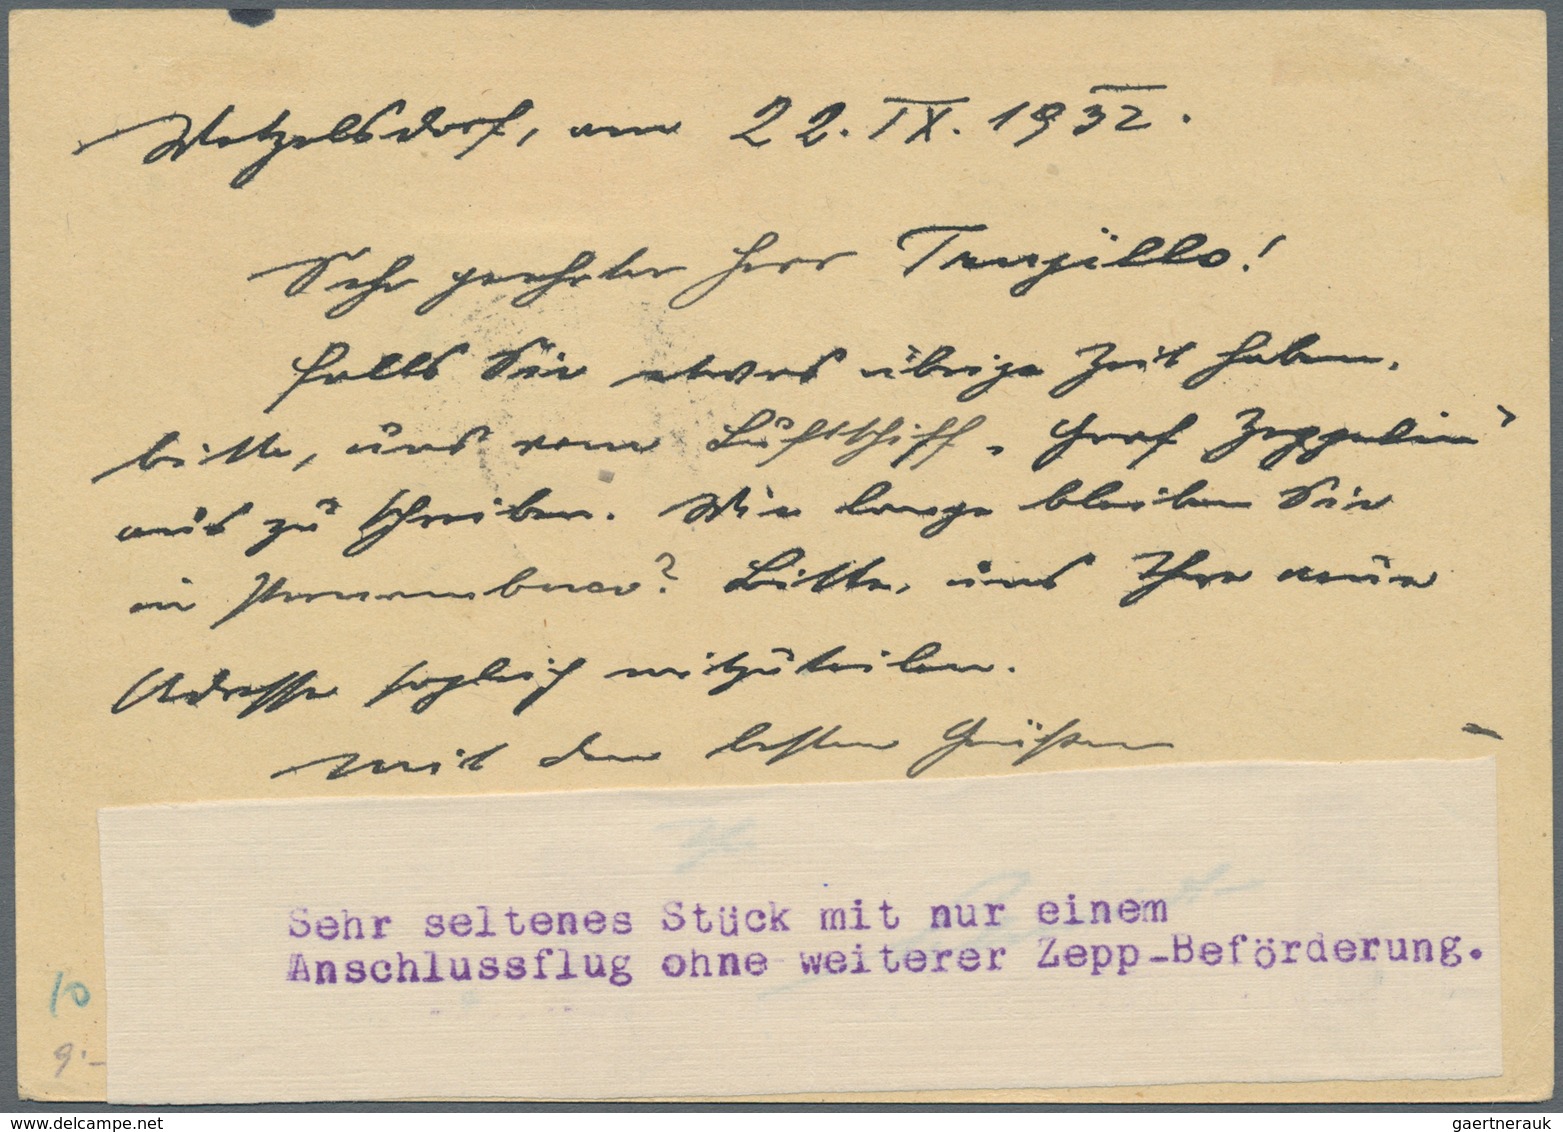 Wetzelsdorf, am 22. IX. 1932.
Sehr geehrter Herr Trujillo!
Falls Sie etwas übrige Zeit haben,
bitte, uns vom Luftschiff „Graf Zeppelin"
aus zu schreiben. Wie lange bleiben Sie
in Pernambuco? Bitte, uns Ihre neue
Adresse sogleich mitzuteilen.
Mit den besten Grüßen
Sehr seltenes Stück mit nur einem
Anschlussflug ohne weiterer Zepp-Beförderung.
10
9.-
gaertnerauk